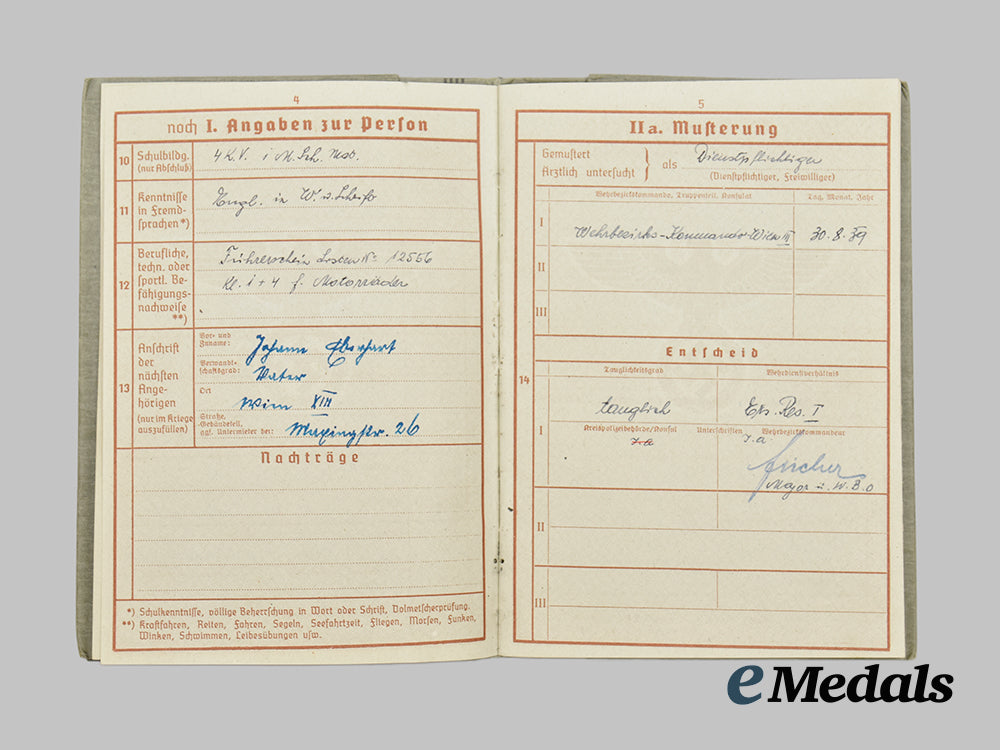 4
noch I. Angaben zur Person
10 Schulbildg. (nur Abschluß)
4 K.V. i M. Sch.
11 Kenntnisse in Fremd-sprachen*)
Engl. in W. u. Schrift
12 Berufliche, techn. oder sportl. Be-fähigungs-nachweise **)
Führerschein N° 12556
Kl. 1 + 4 f. Motorräder
13 Anschrift der nächsten Ange-hörigen (nur im Kriege auszufüllen)
Vor- und Zuname: Johann Eberhart
Verwandt-schaftsgrad: Vater
Ort Wien XIII
Straße, Gebäudeteil, ggf. Untermieter bei: Maxingstr. 26
Nachträge
*) Schulkenntnisse, völlige Beherrschung in Wort oder Schrift, Dolmetscherprüfung.
**) Kraftfahren, Reiten, Fahren, Segeln, Seefahrtzeit, Fliegen, Morsen, Funken,
Winken, Schwimmen, Leibesübungen usw.
5
IIa. Musterung
Gemustert
Ärztlich untersucht } als Dienstpflichtiger
(Dienstpflichtiger, Freiwilliger)
Wehrbezirkskommando, Truppenteil, Konsulat Tag, Monat, Jahr
I Wehrbezirks-Kommando Wien III 30.8.39
II
III
Entscheid
14
Tauglichkeitsgrad Wehrdienstverhältnis
I tauglich Ers. Res. I
Kreispolizeibehörde/Konsul Unterschriften Wehrbezirkskommandeur
I.A. I.A.
Major u. W.B.O
II
III
eMedals